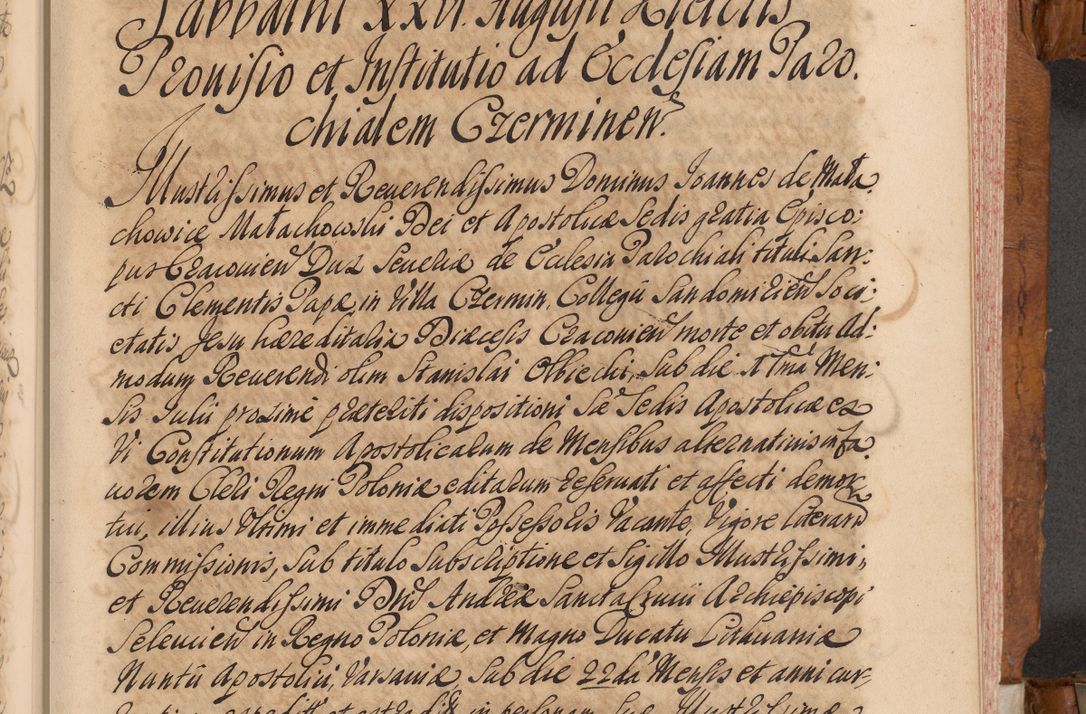 Sabbathi XXVI. Augusti
Provisio et Institutio ad Ecclesiam Paro.
chialem Czerminen.
Illustrissimus et Reverendissimus Dominus Joannes de Mała
chowice Małachowski Dei et Apostolicæ Sedis gratia Episco:
pus Cracovien Dux Severiæ de Ecclesia Parochiali tituli San:
cti Clementis Papæ, in Villa Czermin, Collegii Sandomirien Soci:
etatis Jesu hæreditaria Diæcesis Cracovien morte et obitu Ad:
modum Reverendi olim Stanislai sub die Men:
sis Julii proximè præteriti dispositioni Sæ Sedis Apostolicæ ex
Vi Constitutionum Apostolicarum de Mensibus alternativis in fa
vorem Cleri Regni Poloniæ editarum reservati et affecti demor
tui, illius Ultimi et immediati Possessoris Vacante, Vigore literarũ
Commissionis, sub titulo subscriptione et sigillo Illustrissimi,
et Reverendissimi Dnĩ Andreæ Sanctacrucii Archiepiscopi
Seleucien in Regno Poloniæ, et Magno Ducatu Lithuaniæ
Nuntii Apostolici, Varsaviæ sub die 22da Mensis et anni cur:
et in personam Suæ Illustrissimæ